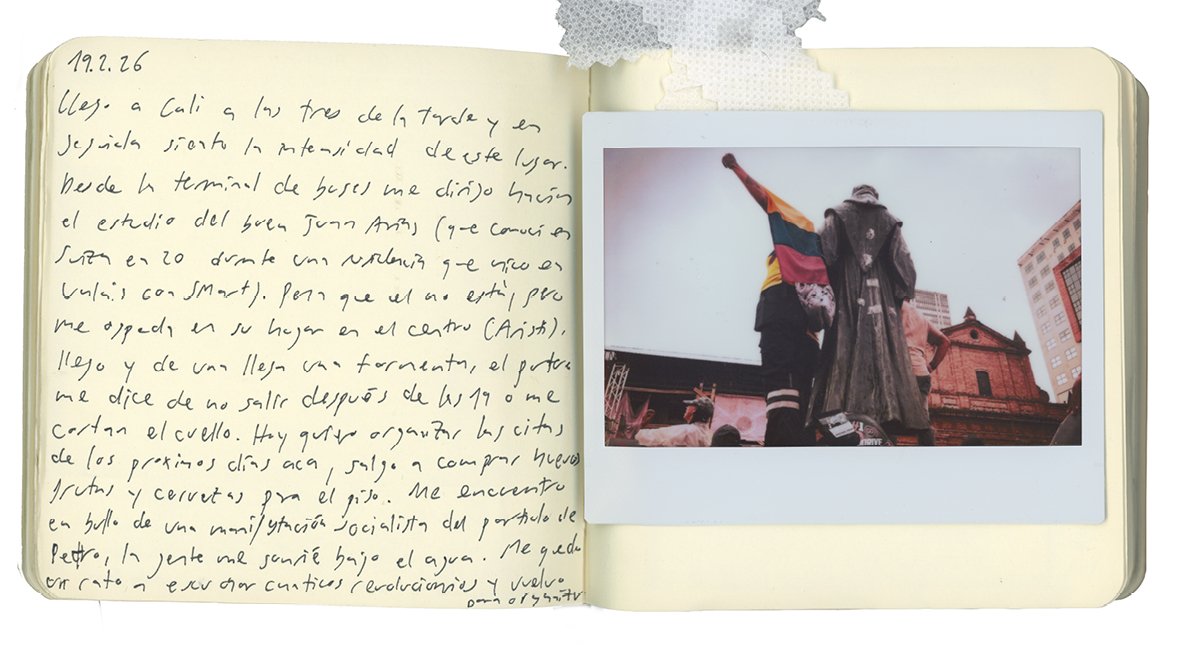 19.2.26
llego a Cali a las tres de la tarde y en
seguida siento la intensidad de este lugar.
Desde la terminal de buses me dirijo hacia
el estudio del buen Juan Arias (que conocí en
Suiza en 20 durante una residencia que hizo en
Valais con SMart). Pero que el no está, pero
me ospeda en su hogar en el centro (Aristi).
llego y de una llega una tormenta, el portero
me dice de no salir después de las 19 o me
cortan el cuello. Hoy quiero organizar las citas
de los proximos días aca, salgo a comprar huevos
frutas y cervezas para el piso. Me encuentro
en bullo de una manifestación socialista del partido de
Petro, la gente me sonríe bajo el agua. Me quedo
un rato a escuchar canticos revolucionarios y vuelvo
para organizar
DRIVE